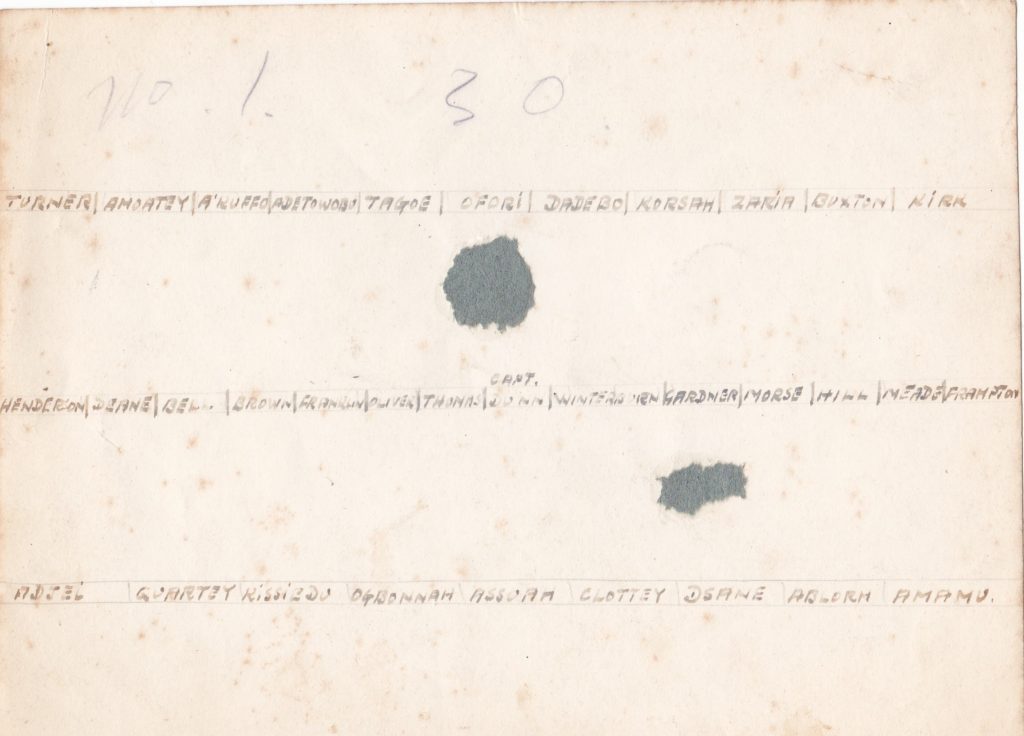 No. 1. 30
TURNER | AMOATEY | A'KUFFO | ADETOWOBU | TAGOE | OFORI | DADEBO | KORSAH | ZARIA | BUXTON | KIRK
CAPT.
HENDERSON | DEANE | BELL | BROWN | FRANKLIN | OLIVER | THOMAS | DUNN | WINTERBURN | GARDNER | MORSE | HILL | MEADE | FRAMPTON
ADJEI | QUARTEY | KISSIEDU | OGBONNAH | ASSUAH | CLOTTEY | DSANE | ABLORH | AMAMU.